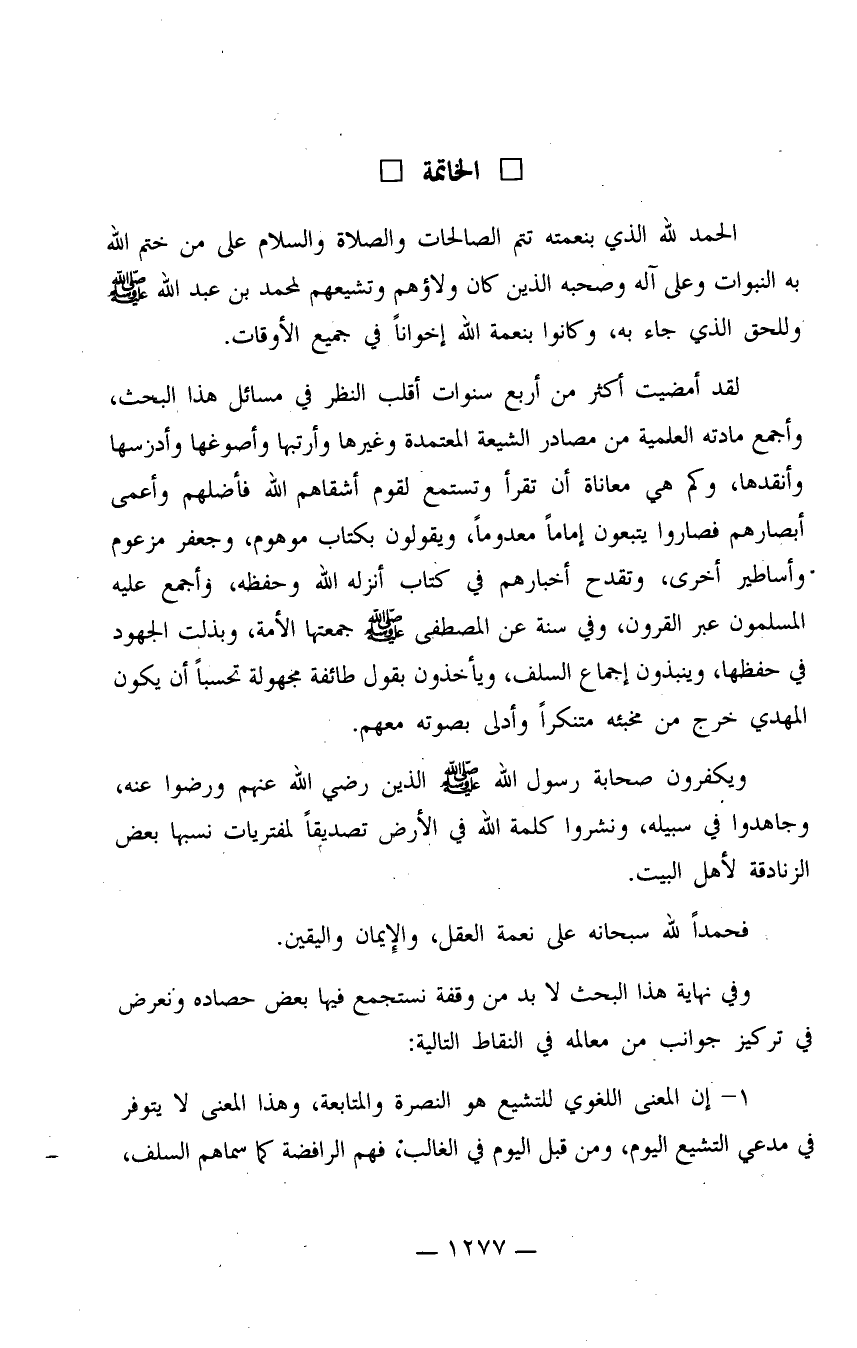 □ الخاتمة □
الحمد لله الذي بنعمته تتم الصالحات والصلاة والسلام على من ختم الله
به النبوات وعلى آله وصحبه الذين كان ولاؤهم وتشيعهم لمحمد بن عبد الله ﷺ
وللحق الذي جاء به، وكانوا بنعمة الله إخواناً في جميع الأوقات.
لقد أمضيت أكثر من أربع سنوات أقلب النظر في مسائل هذا البحث،
وأجمع مادته العلمية من مصادر الشيعة المعتمدة وغيرها وأرتبها وأصوغها وأدرسها
وأنقدها، وكم هي معاناة أن تقرأ وتستمع لقوم أشقاهم الله فأضلهم وأعمى
أبصارهم فصاروا يتبعون إماماً معدوماً، ويقولون بكتاب موهوم، وجعفر مزعوم
وأساطير أخرى، وتقدح أخبارهم في كتاب أنزله الله وحفظه، وأجمع عليه
المسلمون عبر القرون، وفي سنة عن المصطفى ﷺ جمعتها الأمة، وبذلت الجهود
في حفظها، وينبذون إجماع السلف، ويأخذون بقول طائفة مجهولة تحسباً أن يكون
المهدي خرج من مخبئه متنكراً وأدلى بصوته معهم.
ويكفرون صحابة رسول الله ﷺ الذين رضي الله عنهم ورضوا عنه،
وجاهدوا في سبيله، ونشروا كلمة الله في الأرض تصديقاً لمفتريات نسبها بعض
الزنادقة لأهل البيت.
فحمداً لله سبحانه على نعمة العقل، والإيمان واليقين.
وفي نهاية هذا البحث لا بد من وقفة نستجمع فيها بعض حصاده ونعرض
في تركيز جوانب من معالمه في النقاط التالية:
١- إن المعنى اللغوي للتشيع هو النصرة والمتابعة، وهذا المعنى لا يتوفر
في مدعي التشيع اليوم، ومن قبل اليوم في الغالب؛ فهم الرافضة كما سماهم السلف،
— ١٢٧٧ —